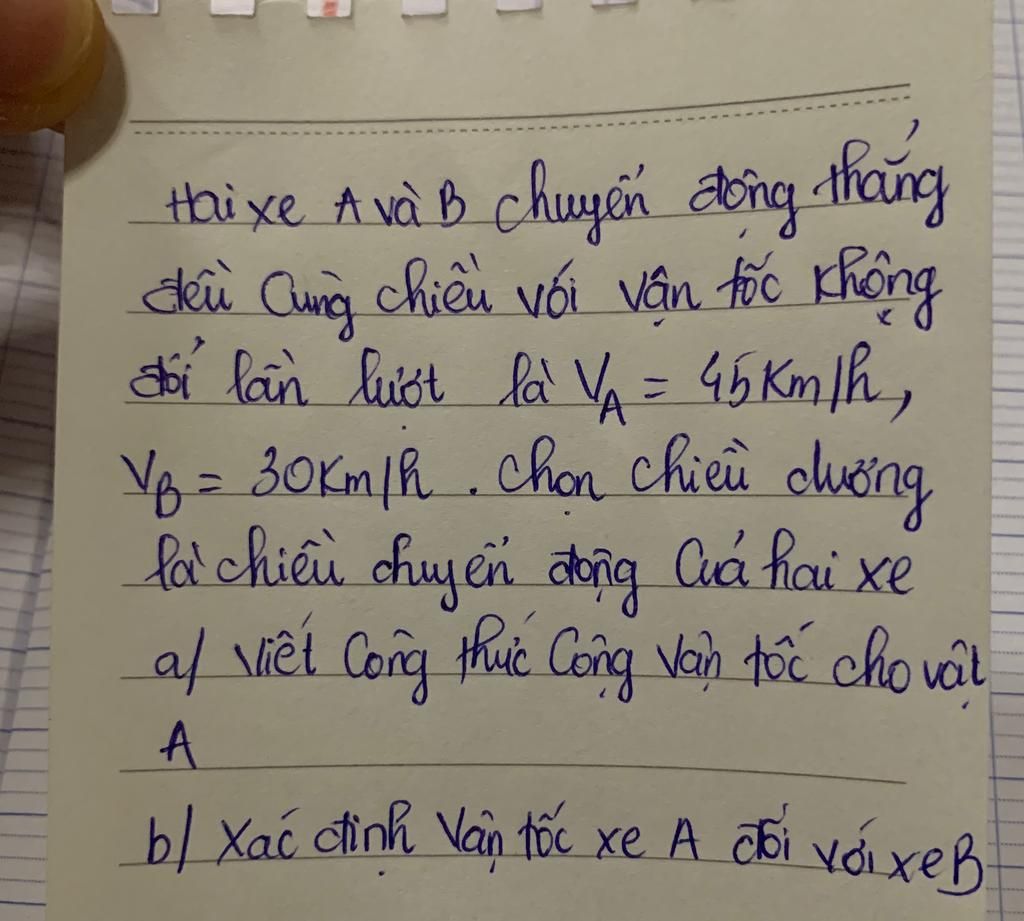 Hai xe A và B chuyển động thẳng
đều cùng chiều với vận tốc không
đổi lần lượt là VA = 45Km/h,
VB = 30Km/h. chọn chiều dương
là chiều chuyển động của hai xe
a/ Viết công thức cộng vận tốc cho vật
A
b/ Xác định vận tốc xe A đối với xe B